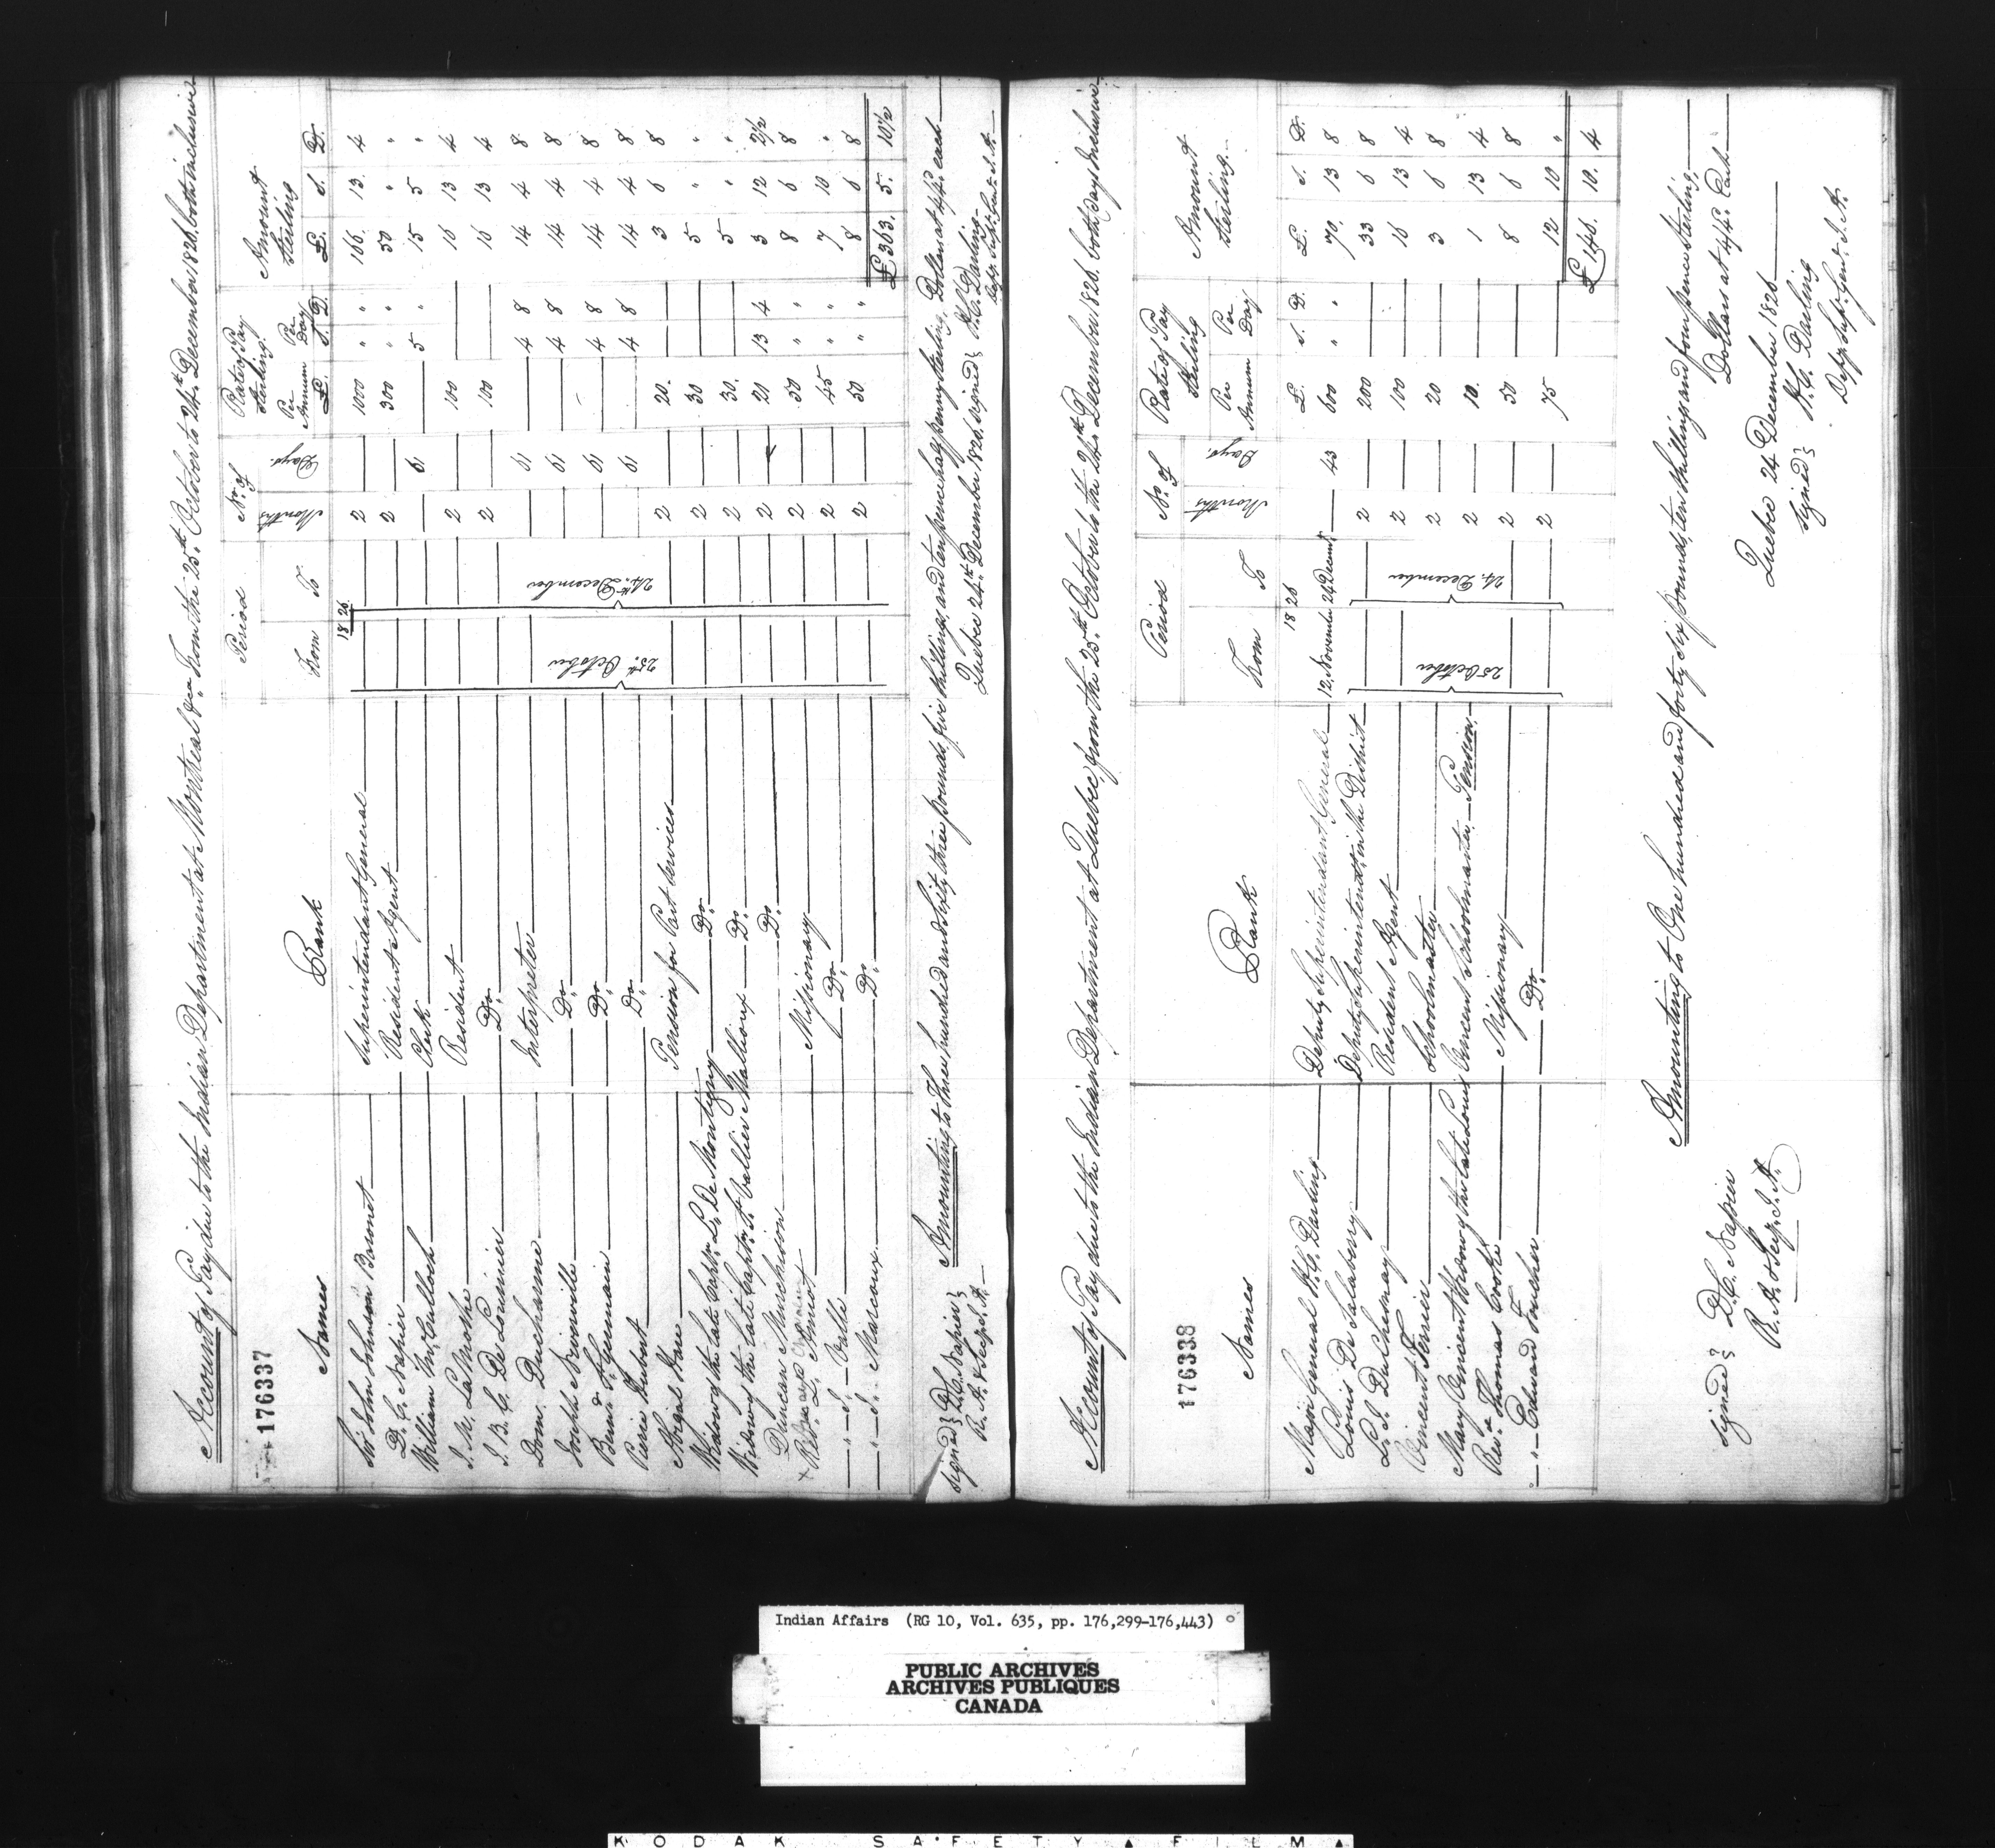 Account of Pay due to the Indian Department at Montreal &ca. from the 25th. October to 24th. December 1826. both inclusive
176337
Names Rank Period No. of Rate of Pay Sterling Amount Sterling
From To Months Days Per Annum Per Day
£. S. D. £. S. D.
1826
Sir John Johnson Baronet Superintendant General 2 1000 " " 166. 13. 4
D. C. Napier Resident Agent 2 300 " " 50 " "
William McCulloch Clerk 61 5 " 15 5 "
J. M. LaMothe Resident 2 100 16 13 4
J. B. C. De Lorimier Do. 2 100 16 13 4
Dom. Ducharme Interpreter 61 4 8 14 4 8
Joseph Niverville Do. 61 4 8 14 4 8
Benn. St. Germain Do. 61 4 8 14 4 8
Pierre Dubout Do. 61 4 8 14 4 8
25th. October 24th. December
Abigal Hare Pension for Past Services 2 20. 3 6 8
Widow of the late Captn. L. De Montigny Do. 2 30 5 " "
Widow of the late Captn. J. Vallier Mailloux Do. 2 30. 5 " "
Duncan Murchison Do. 2 21 13 4 3 12 2½
x Revd. L. Amiot Missionary 2 50 " " 8 6 8
" J. Vallé Do. 2 45 " " 7 10 "
" J. Marcoux Do. 2 50 " " 8 6 8
£363. 5. 10½
Amounting to Three hundred and Sixty three pounds, five shillings and ten pence half penny sterling, Dollars at 4/4d. each
Quebec 24th. December 1826. signed } H. C. Darling
Depy. Supt. Genl. I. A.
signed } D. C. Napier
R. A. & Secy. I. A.
Account of Pay due to the Indian Department at Quebec from the 25th. October to the 24th. December 1826. both days Inclusive
176338
Names Rank Period No. of Rate of Pay Sterling Amount Sterling
From To Months Days. Per Annum Per Day
£. S. D. £. S. D.
1826
Major General H. C. Darling Deputy Superintendant General 12, November 24 Decemr. 43 600 " " 70. 13 8
Louis De Salaberry Deputy Superintendt. in the District 2 200 33 6 8
L. J. Duchesnay Resident Agent 2 100 16 13 4
Vincent Ferrier Schoolmaster 2 20 3 6 8
25 October 24. December
Mary Vincent Widow of the late Louis Vincent Schoolmaster Pension. 2 10. 1 13 4
Revd. Thomas Cooke Missionary 2 50 8 6 8
" Edward Foucher Do. 2 75 12 10 "
£146. 10. 4
Amounting to One hundred and forty six pounds, ten shillings and four pence sterling,
Dollars at 4/4d. Each
Quebec 24 December 1826
signed } H. C. Darling
Depy. Supt. Genl. I. A.
signed } D. C. Napier
R. A. & Secy. I. A.
Indian Affairs (RG 10, Vol. 635, pp. 176,299-176,443)
PUBLIC ARCHIVES
ARCHIVES PUBLIQUES
CANADA
KODAK SAFETY FILM